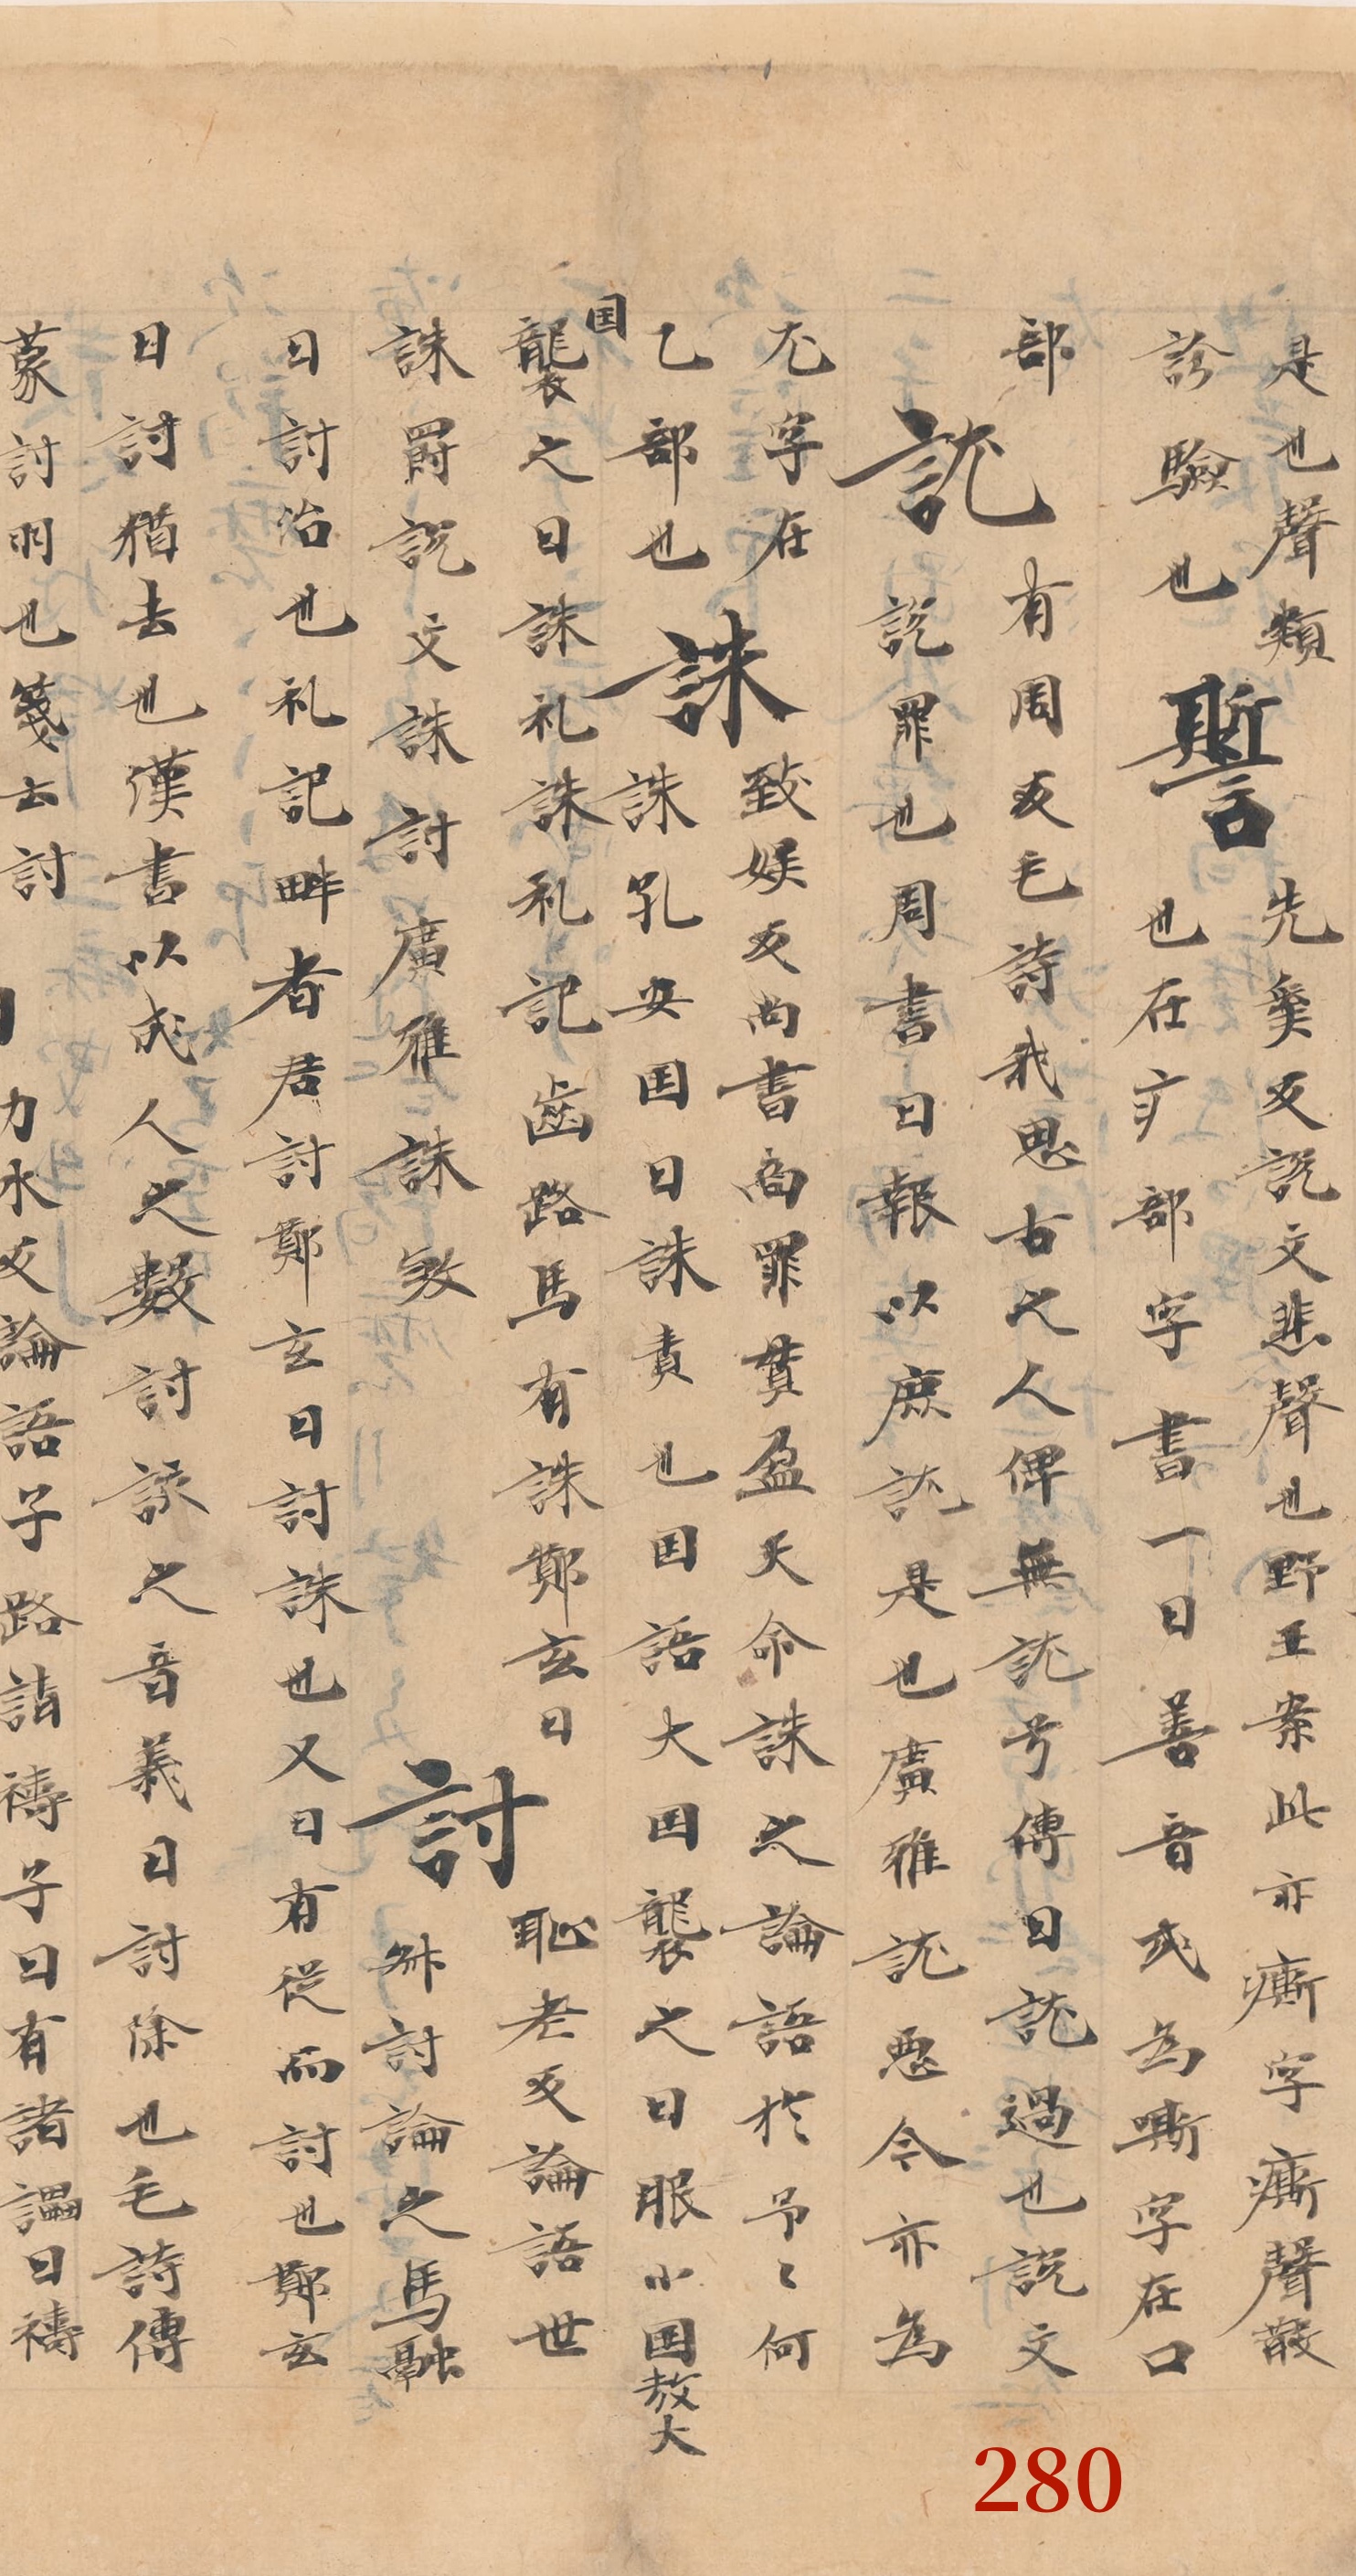 是也聲類
診驗也
先奚反説文悲聲也野王案此亦㾷字㾷聲散
也在疒部字書一曰善音或為嘶字在口
部
訧
有周反毛詩我思古之人俾無訧兮傳曰訧過也説文
説罪也周書曰報以庶訧是也廣雅訧惡今亦為
尤字在
乙部也
誅
致娱反尚書商罪貫盈天命誅之論語於予〻何
誅孔安国曰誅責也国語大国襲之曰服小国敖大
国
襲之曰誅礼誅礼記齒路馬有誅鄭玄曰
誅爵説文誅討廣雅誅煞
討
恥老反論語世
舛討論之馬融
曰討治也礼記畔者君討鄭玄曰討誅也又曰有從而討也鄭玄
曰討猶去也漢書以戍人之數討諑之音義曰討除也毛詩傳
蒙討羽也箋云討
力水反論語子路請禱子曰有諸讄曰禱
280